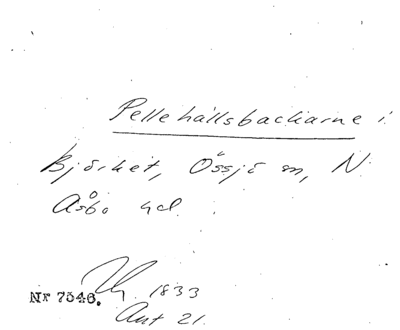 Pellehallsbackarne i
Björket, Össjö sn, N.
Åsbo hd.
1833
Nr 7546.
Ant 21.